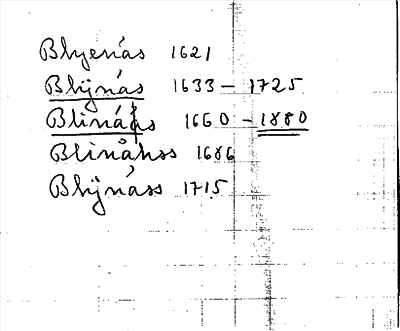 Blyenäs 1621
Blijnäs 1633 – 1725
Blinäs 1660 – 1880
Blinåhss 1686
Blÿnäss 1715